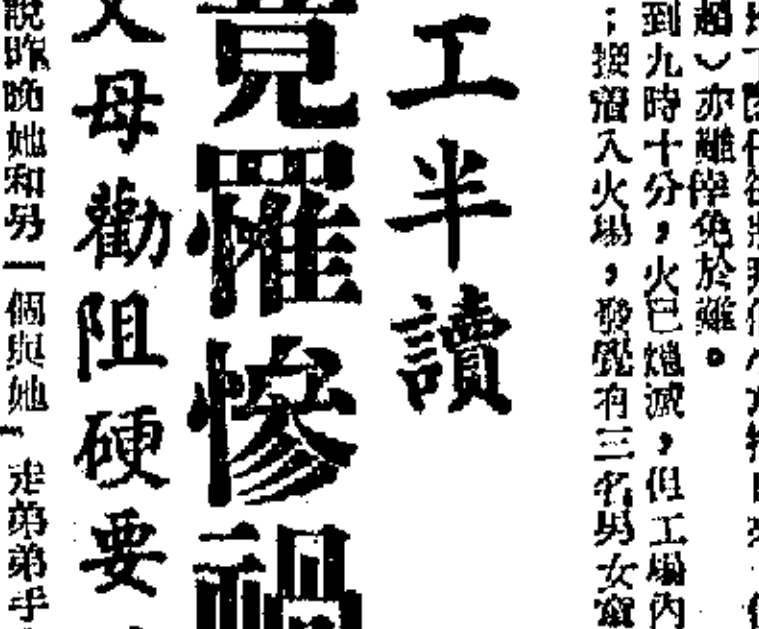 趙）亦難倖免於難。
到九時十分，火已熄滅，但工場內
；援潛入火場，發覺有三名男女窒
工半讀
竟罹慘禍
父母勸阻硬要
說昨晚她和另一個與她
走弟弟手